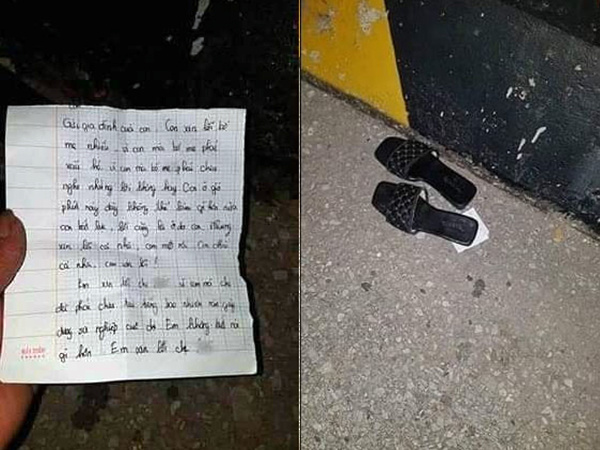 Gửi gia đình của con. Con xin lỗi bố
mẹ nhiều. vì con mà bố mẹ phải
xấu hổ, vì con mà bố mẹ phải chịu
nghe những lời không hay Con ở giờ
phút này đây không thể làm gì hơn nữa
con bất lực. lỗi cũng là ở do con. Nhưng
xin lỗi cả nhà, con mệt rồi. Con chào
cả nhà. con xin lỗi!
Em xin lỗi chị vì em mà chị
đã phải chịu
dựng sự nghiệp của chị Em không biết nói
gì hơn Em xin lỗi chị